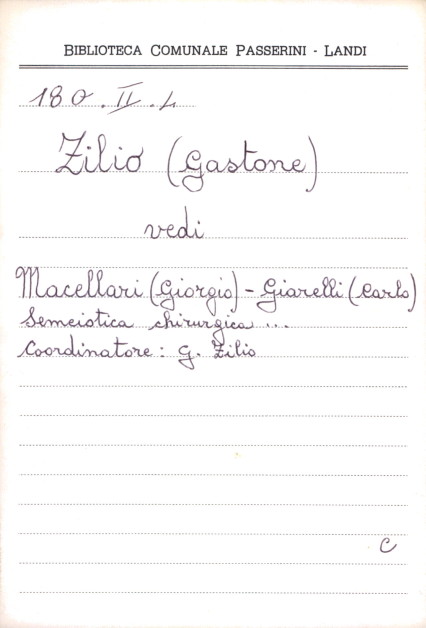 BIBLIOTECA COMUNALE PASSERINI - LANDI
180.II.L
Zilio (Gastone)
vedi
Macellari (Giorgio) - Giarelli (Carlo)
Semeiotica chirurgica ...
Coordinatore: G. Zilio
C